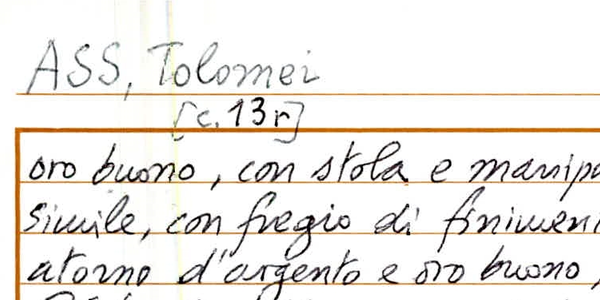 ASS, Tolomei
[c. 13r]
oro buono, con stola e manipo
simile, con fregio di finimen
atorno d'argento e oro buono,